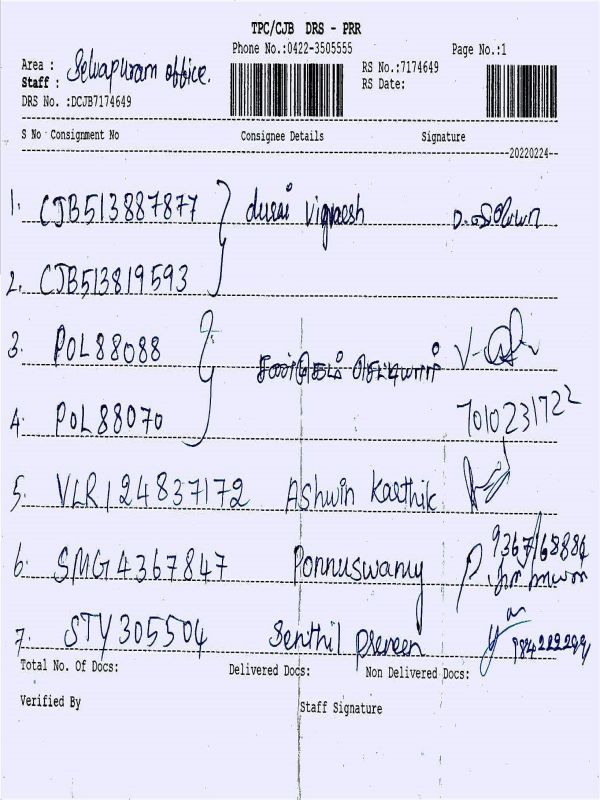 TPC/CJB DRS - PRR
Phone No.:0422-3505555 Page No.:1
Area : Selvapuram office.
Staff :
RS No.:7174649
RS Date:
DRS No. :DCJB7174649
S No Consignment No Consignee Details Signature
20220224
1. CJB513887877 durai vignesh
2. CJB513819593
3. POL88088
4. POL88070 7010231722
5. VLR124837172 Ashwin Karthik
6. SMG4367847 Ponnuswamy
7. STY305504 Senthil Praveen
Total No. Of Docs: Delivered Docs: Non Delivered Docs:
Verified By Staff Signature